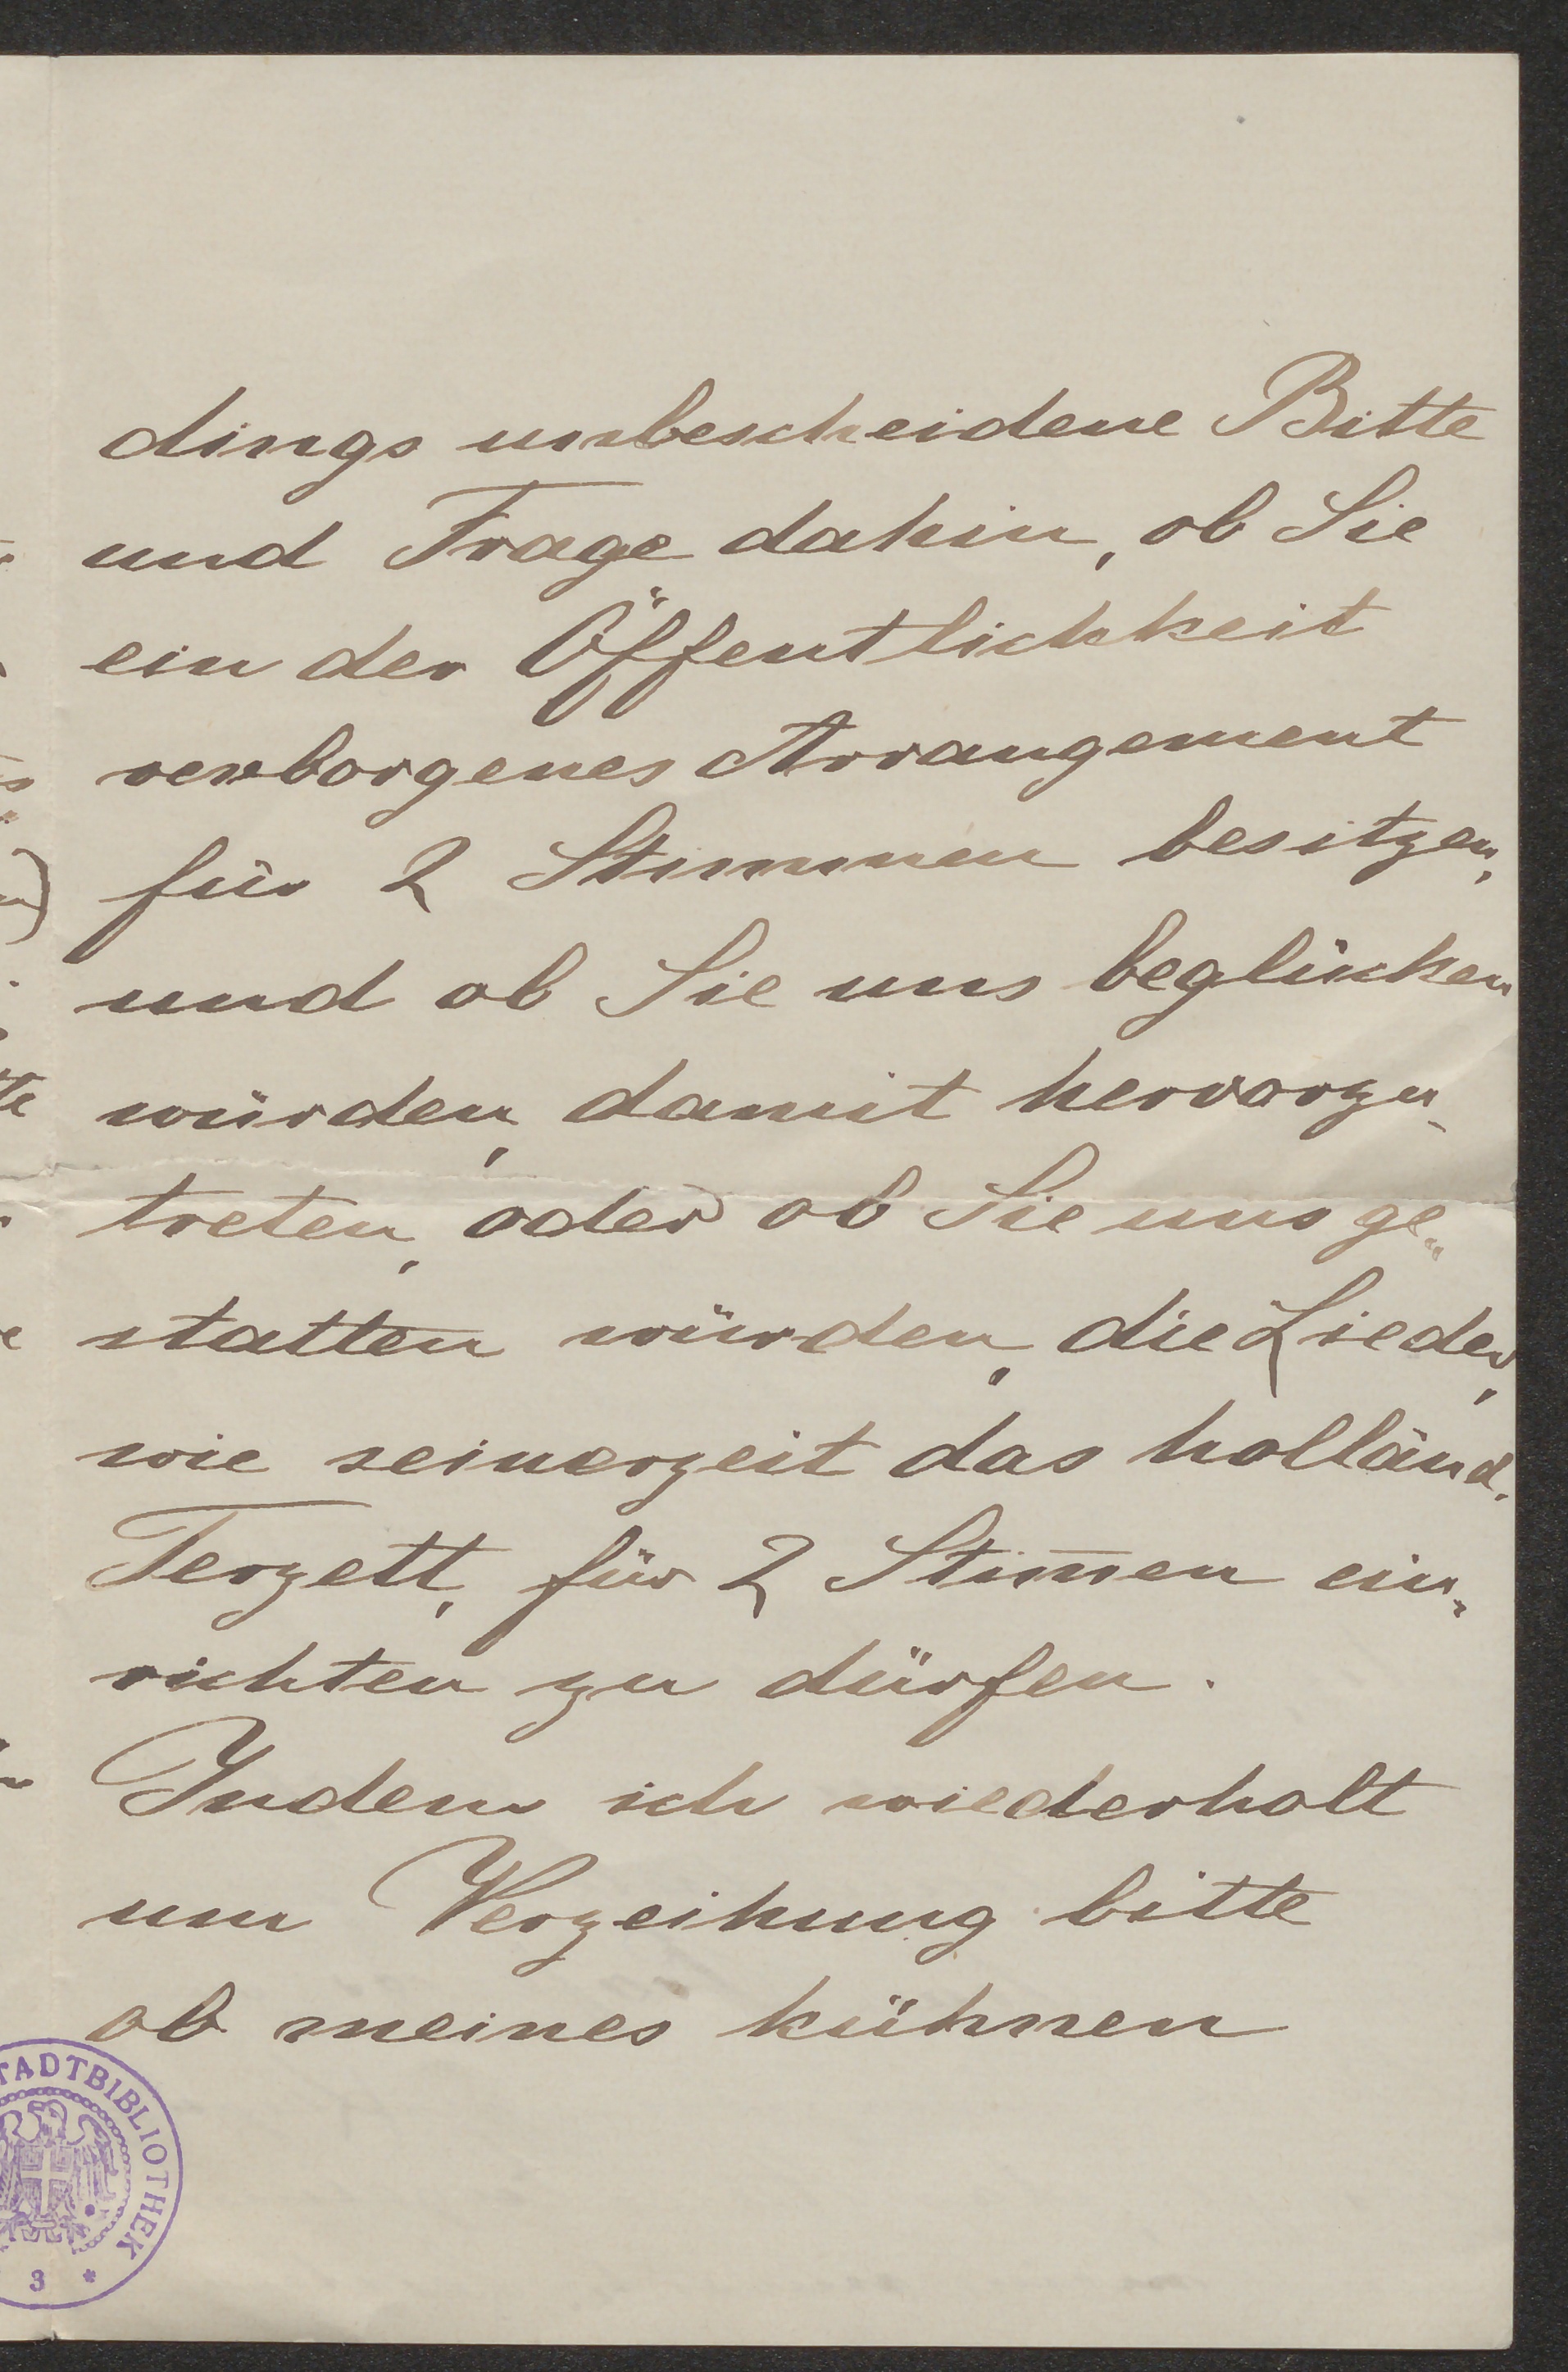 dings unbescheidene Bitte
und Frage dahin, ob Sie
ein der Öffentlichkeit
verborgenes Arrangement
für 2 Stimmen besitzen,
und ob Sie uns beglücken
würden, damit hervorzu-
treten, oder ob Sie uns ge-
statten würden, die Lieder,
wie seinerzeit das holländ.
Terzett, für 2 Stim̅en ein-
richten zu dürfen.
Indem ich wiederholt
um Verzeihung bitte
ob meines kühnen
TADTBIBLIOTHEK
3 *